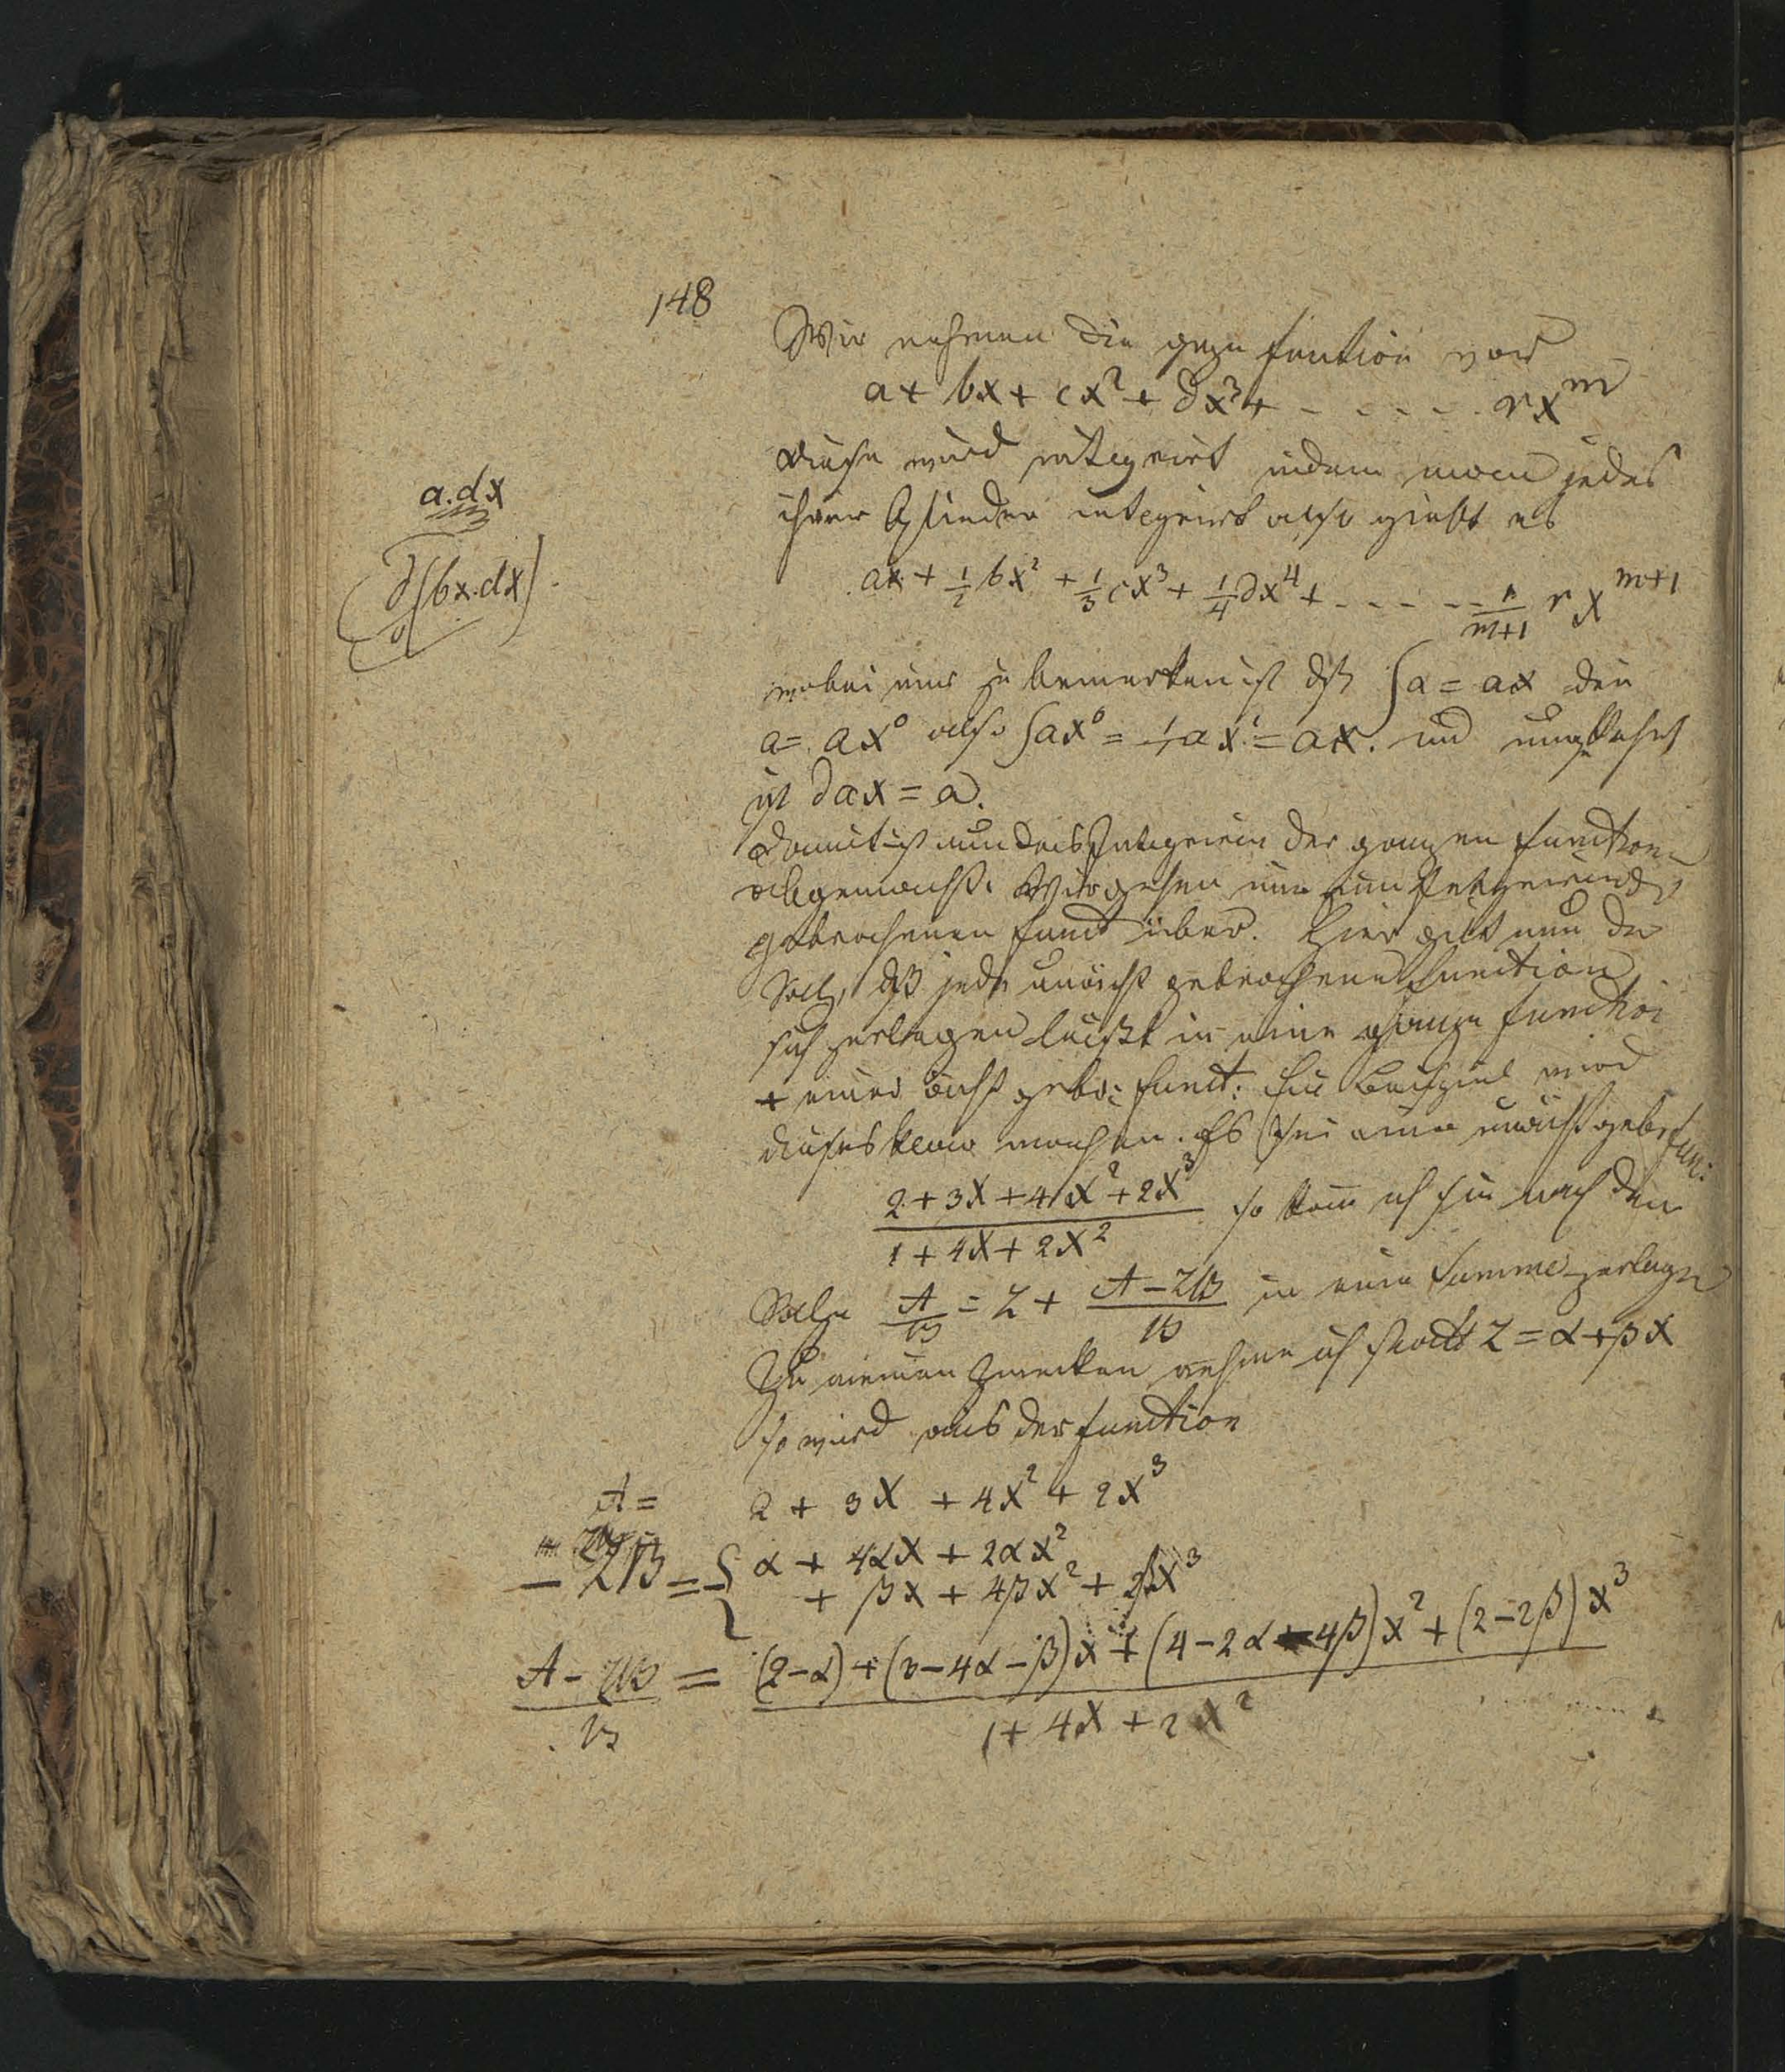 148
Wir nehmen die ganze function vor
a + bx + cx² + ∂x³ + - - - - - rx^m
diese wird integrirt indem man jedes
ihrer Glieder integrirt also giebt es
a.dx
∂(bx.dx).
ax + 1/2 bx² + 1/3 cx³ + 1/4 ∂x⁴ + - - - - - 1/(m+1) r x^(m+1)
wobei nur zu bemerken ist dß ∫a = ax den
a = ax⁰ also ∫ax⁰ = 1/1 ax¹ = ax. und umgekehrt
ist ∂ax = a.
Damit ist nun das Integriren der ganzen function
abgemacht. Wir gehen nun zum
gebrochenen funct über. Hier gilt nun der
Satz, dß jede unächt gebrochene function
sich zerlegen läßt in eine ganze function
+ einer ächt gebr: funct: Ein Beispiel wird
dieses klar machen. Es sei eine unächt gebr fun:
(2 + 3x + 4x² + 2x³)/(1 + 4x + 2x²) so kann ich sie nach dem
Satze A/B = Z + (A - ZB)/B in eine Summe zerlegen
Zu meinen Zwecken nehme ich statt Z = α + βx
so wird aus der function
A = 2 + 3x + 4x² + 2x³
- ZB = { α + 4αx + 2αx²
+ βx + 4βx² + 2βx³
(A - ZB)/B = ((2-α) + (3-4α-β)x + (4-2α-4β)x² + (2-2β)x³)/(1 + 4x + 2x²)